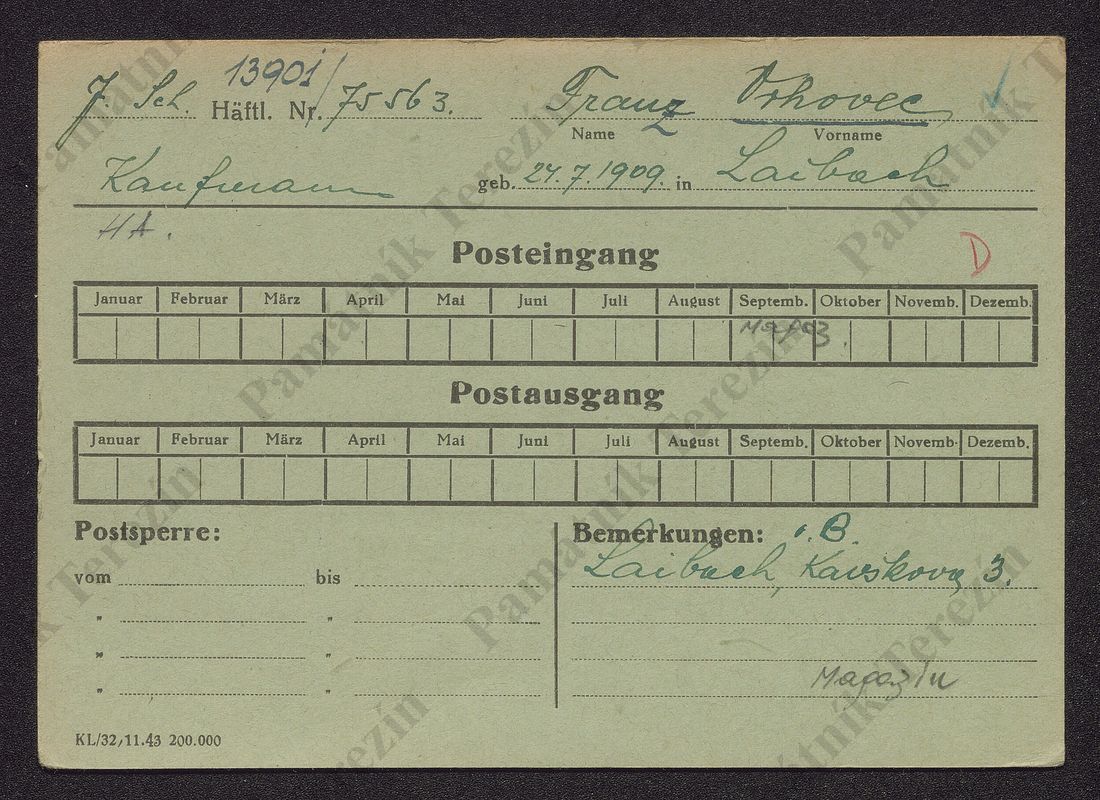 J. Sch. Häftl. Nr. 13901/75563. Franz Vrhovec
Name Vorname
Kaufmann geb. 24.7.1909. in Laibach
HA.
Posteingang
D
Januar Februar März April Mai Juni Juli August Septemb. Oktober Novemb. Dezemb.
Postausgang
Januar Februar März April Mai Juni Juli August Septemb. Oktober Novemb. Dezemb.
Postsperre:
vom bis
" "
" "
" "
Bemerkungen: o.B.
Laibach, 3.
Magazin
KL/32,11.43 200.000
Památník Terezín